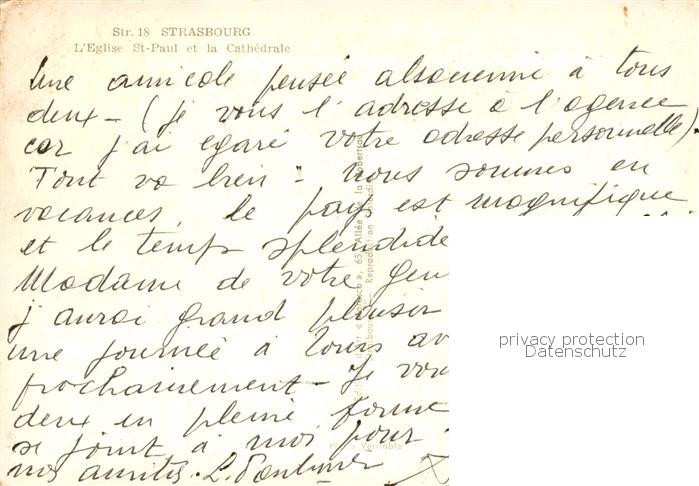 Str. 18 STRASBOURG
L'Eglise St-Paul et la Cathédrale
Une amicale pensée alsacienne à tous
deux - (je vous l'adresse à l'agence
car j'ai égaré votre adresse personnelle).
Tout va bien - nous sommes en
vacances, le pays est magnifique
et le temps splendide
Madame de votre gen
j'aurai grand plaisir
une journée à Tours av
prochainement - Je vou
deux en pleine forme
se joint à moi pour
nos amitiés.
65, Allée de la Robertsau
Reproduction interdite
Véritable
privacy protection
Datenschutz